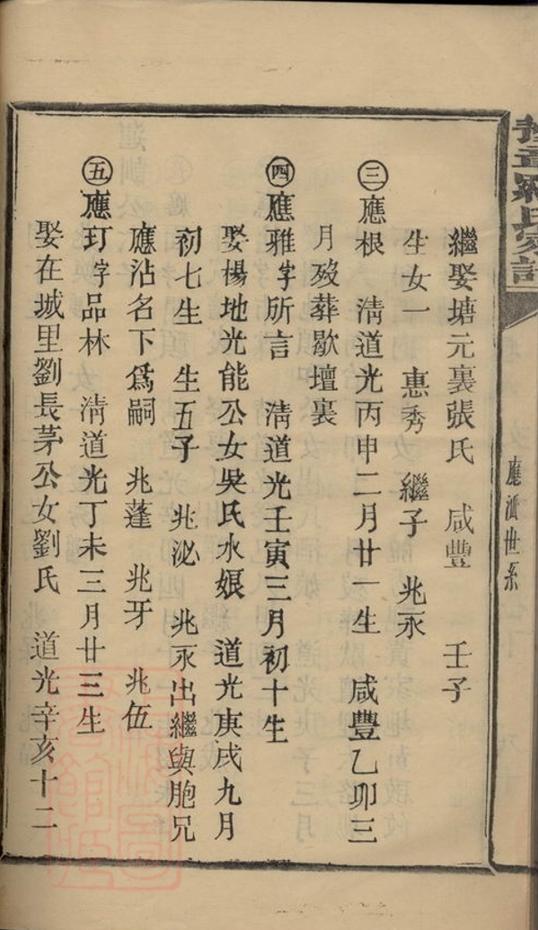 豫章羅氏家譜
應沾世系
繼娶塘元裏張氏　咸豐　　壬子
生女一　惠秀　繼子　兆永
㊂應根　淸道光丙申二月廿一生　咸豐乙卯三
月歿葬歇壇裏
㊃應雅字所言　淸道光壬寅三月初十生
娶楊地光能公女吳氏水娘　道光庚戌九月
初七生　生五子　兆泌　兆永出繼與胞兄
應沾名下爲嗣　兆蓬　兆牙　兆伍
㊄應玎字品林　淸道光丁未三月廿三生
娶在城里劉長茅公女劉氏　道光辛亥十二